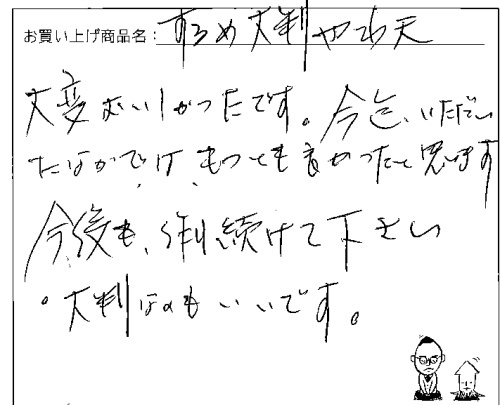 お買い上げ商品名：するめ大判やわ天
大変おいしかったです。今迄、いただい
たなかでは、もっとも良かったと思います
今後も、作り続けて下さい
。大判なのもいいです。